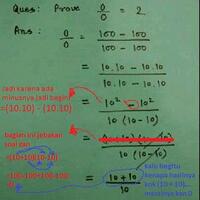 Ques: Prove 0/0 = 2
Ans:
0/0 = 100 - 100 / 100 - 100
= 10.10 - 10.10 / 10.10 - 10.10
jadi karena ada
minusnya jadi begini
=(10.10) - (10.10)
= 10² - 10² / 10 (10-10)
bagian ini jebakan
soal dan
=(10+10)(10-10) / 10 (10-10)
=(10+10)(10-10)
= 10 + 10 / 10
kalo begitu
kenapa hasilnya